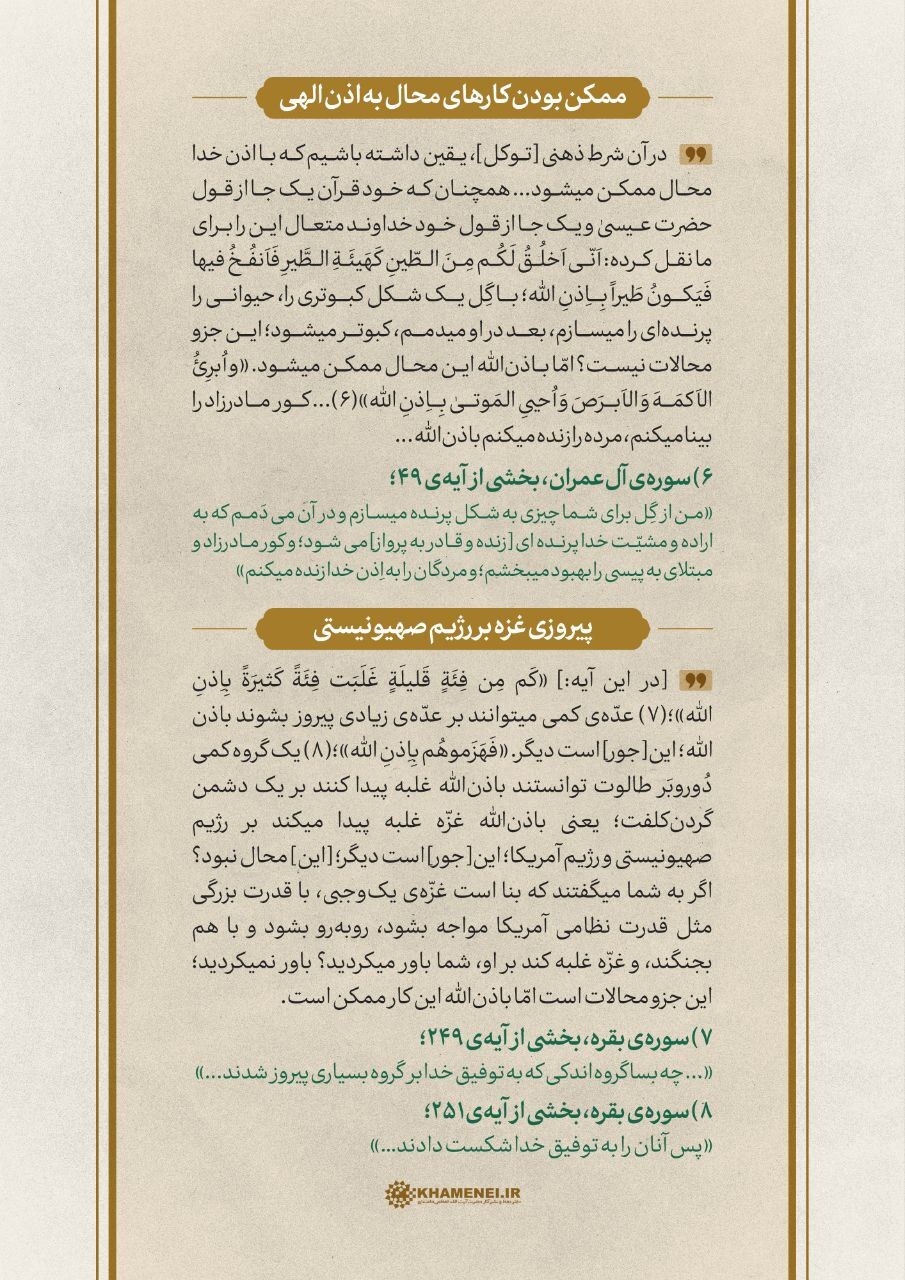 ممکن بودن کارهای محال به اذن الهی
در آن شرط ذهنی [توکل]، یقین داشته باشیم که با اذن خدا
محال ممکن میشود... همچنان که خود قرآن یک جا از قول
حضرت عیسیٰ و یک جا از قول خود خداوند متعال این را برای
ما نقل کرده: اَنّی اَخلُقُ لَکُم مِنَ الطّینِ کَهَیئَةِ الطَّیرِ فَاَنفُخُ فیها
فَیَکونُ طَیراً بِاِذنِ الله؛ با گِل یک شکل کبوتری را، حیوانی را
پرنده‌ای را میسازم، بعد در او میدمم، کبوتر میشود؛ این جزو
محالات نیست؟ امّا باذن‌الله این محال ممکن میشود. «و اُبرِئُ
الاَکمَهَ وَ الاَبرَصَ وَ اُحیِی المَوتیٰ بِاِذنِ الله»(۶)... کور مادرزاد را
بینا میکنم، مرده را زنده میکنم باذن‌الله ...
۶) سوره‌ی آل عمران، بخشی از آیه‌ی ۴۹؛
«من از گِل برای شما چیزی به شکل پرنده میسازم و در آن می دَمم که به
اراده و مشیّت خدا پرنده ای [زنده و قادر به پرواز] می شود؛ و کور مادرزاد و
مبتلای به پیسی را بهبود میبخشم؛ و مردگان را به اِذن خدا زنده میکنم»
پیروزی غزه بر رژیم صهیونیستی
[در این آیه:] «کَم مِن فِئَةٍ قَلیلَةٍ غَلَبَت فِئَةً کَثیرَةً بِاِذنِ
الله»؛(۷) عدّه‌ی کمی میتوانند بر عدّه‌ی زیادی پیروز بشوند باذن
الله؛ این [جور] است دیگر. «فَهَزَموهُم بِاِذنِ الله»؛(۸) یک گروه کمی
دُوروبَر طالوت توانستند باذن‌الله غلبه پیدا کنند بر یک دشمن
گردن‌کلفت؛ یعنی باذن‌الله غزّه غلبه پیدا میکند بر رژیم
صهیونیستی و رژیم آمریکا؛ این [جور] است دیگر؛ [این] محال نبود؟
اگر به شما میگفتند که بنا است غزّه‌ی یک‌وجبی، با قدرت بزرگی
مثل قدرت نظامی آمریکا مواجه بشود، روبه‌رو بشود و با هم
بجنگند، و غزّه غلبه کند بر او، شما باور میکردید؟ باور نمیکردید؛
این جزو محالات است امّا باذن‌الله این کار ممکن است.
۷) سوره‌ی بقره، بخشی از آیه‌ی ۲۴۹؛
«... چه بسا گروه اندکی که به توفیق خدا بر گروه بسیاری پیروز شدند...»
۸) سوره‌ی بقره، بخشی از آیه‌ی ۲۵۱؛
«پس آنان را به توفیق خدا شکست دادند...»
KHAMENEI.IR